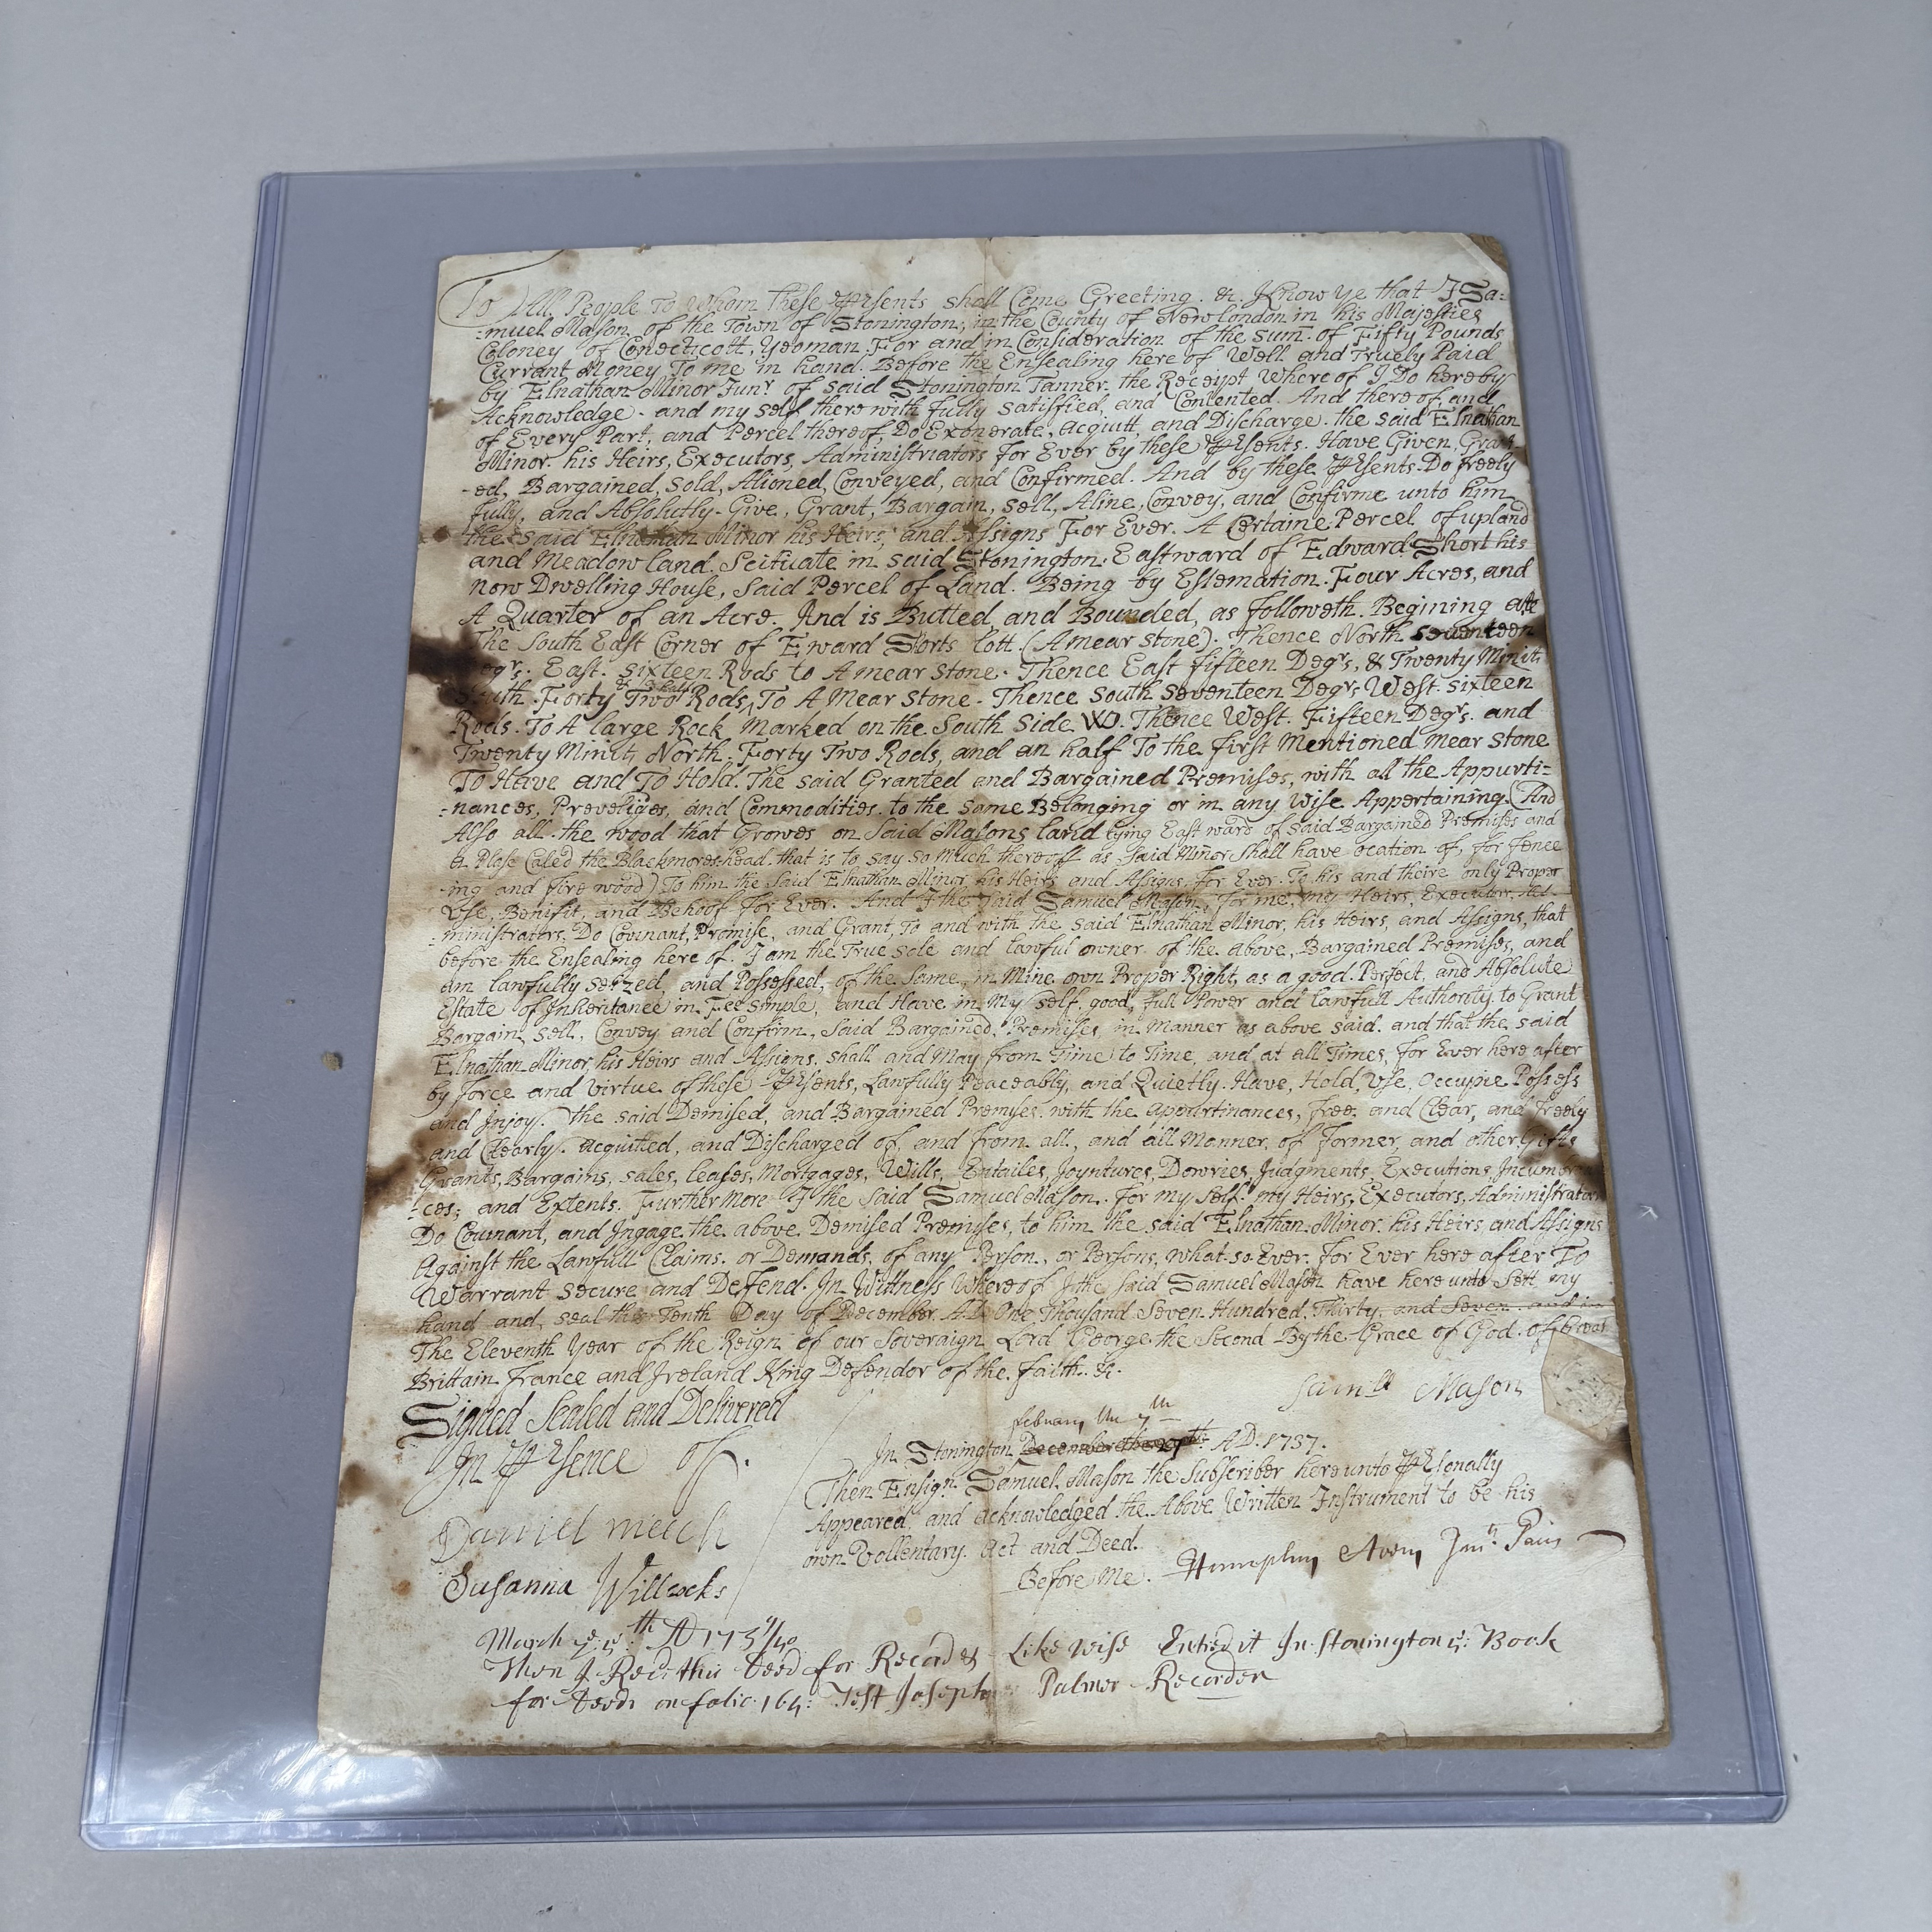 To All People To Whom These Presents shall Come Greeting. &c. Know ye that I Sa=
=muel Mason of the Town of Stonington, in the County of New London in his Majesties
Coloney of Conecticott, Yeoman: For and in Consideration of the sum of Fifty Pounds
Currant Money To me in hand. Before the Ensealing here of Well and Truely Paid
by Elnathan Minor Junr. of said Stonington Tanner. the Receipt Where of I Do hereby
Acknowledge. and my self there with fully satisfied, and Contented. And there of, and
of Every Part, and Percel there of, Do Exonerate, acquitt and Discharge. the said Elnathan
Minor. his Heirs, Executors, Administriators for Ever by these Presents. Have Given, Grant
-ed, Bargained, Sold, Aliened, Conveyed, and Confirmed. And by these Presents. Do freely
fully, and Absolutly. Give, Grant, Bargain, sell, Aline, Convey, and Confirme unto him
the said Elnathan Minor his Heirs, and Assigns For Ever. A Certaine Percel of upland
and Meadow land. Scituate in said Stonington. Eastward of Edward Short his
now Dwelling House, Said Percel of Land. Being by Estemation. Four Acres, and
A Quarter of an Acre. And is Butted, and Bounded, as followeth. Begining att
The South East Corner of Eward Shorts lott. (A mear stone). Thence North seventeen
Degrs. East. sixteen Rods to A mear stone. Thence East fifteen Degrs, & Twenty Minits
South. Forty Two & a half Rods, To A Mear stone. Thence South Seventeen Degrs West. sixteen
Rods. To A large Rock Marked on the South Side WD. Thence West. Fifteen Degrs. and
Twenty Minits North: Forty Two Rods, and an half To the first Mentioned mear stone
To Have and To Hold. The said Granted and Bargained Premises, with all the Appurti=
=nances, Preveliges, and Commodities. to the same Belonging or in any wise Appertaining. (And
Also all the wood that Growes on Said Masons land lying East ward of said Bargained Premises and
a Plase Caled the Blackmoreshead that is to say so much thereoff as said Minor shall have ocation of, for fence
-ing and fire wood) To him the Said Elnathan Minor his Heirs and Assigns For Ever. To his and theire only Proper
Use, Benifit, and Behoof for Ever. And I the said Samuel Mason, for me, my Heirs, Executors, Ad-
=ministrators, Do Covinant, Promise, and Grant, To and with the said Elnathan Minor, his Heirs, and Assigns, that
before the Ensealing here of. I am the True sole and lawful owner of the above, Bargained Premises, and
am lawfully seized, and Possessed, of the same, in Mine own Proper Right, as a good. Perfect, and Absolute
Estate of Inheritance in Fee Simple, and Have in my self, good, full Power and lawfull Authority. to Grant
Bargain, sell, Convey and Confirm, Said Bargained, Premises, in Manner as above said. and that the said
Elnathan Minor, his Heirs and Assigns. shall and May from Time to Time, and at all Times, for Ever here after
by force and virtue of these Presents, Lawfully Peaceably, and Quietly. Have, Hold, Use, Occupie Possess
and Injoy. the said Demised, and Bargained Premises. with the appurtinances, free. and Clear, and freely
and Clearly. acquited, and Discharged of, and from. all, and all Manner, of Former, and other, Gifts
Grants, Bargains, sales, leases, Mortgages, Wills, Entailes, Joyntures, Dowries, Judgments, Executions, Incumbran
=ces; and Extents. Further More I the said Samuel Mason. for my Self. my Heirs, Executors, Administrators
Do Covinant, and Ingage the above Demised Premises, to him the said Elnathan Minor. his Heirs and Assigns
Against the Lawfull Claims. or Demands, of any Person, or Persons, what-so-Ever. for Ever here after To
Warrant secure and Defend. In Wittness Whereof I the said Samuel Mason have here unto Sett my
hand and seal this Tenth Day of December A.D. One Thousand Seven Hundred. Thirty and Seven. and in
The Eleventh Year of the Reign of our Soveraign Lord George the Second By the Grace of God. of Great
Brittain France and Ireland King Defendor of the Faith. &c.
Samll Mason
Signed Sealed and Delivered
In Presence of.
Daniel Meech
Susanna Willcocks
february the 7th
In Stonington December the 27th A.D. 1737.
Then Ensign Samuel Mason the Subscriber here unto Presonally
Appeared, and acknowledged the Above Written Instrument to be his
own Vollentary. Act and Deed.
Before Me. Humphry Avery Jus: Pacis
March ye 5th AD 1739/40
Then I Recd this Deed for Record & Like wise Entred it In Stonington 5: Book
for Deeds on folio 164: Test Joseph Palmer Recorder